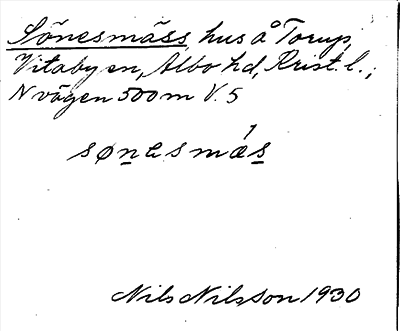 Sönesmäss, hus å Torup,
Vitaby sn, Albo hd, Krist. l.,
N vägen 500 m V. 5
sønesmæs
Nils Nilsson 1930